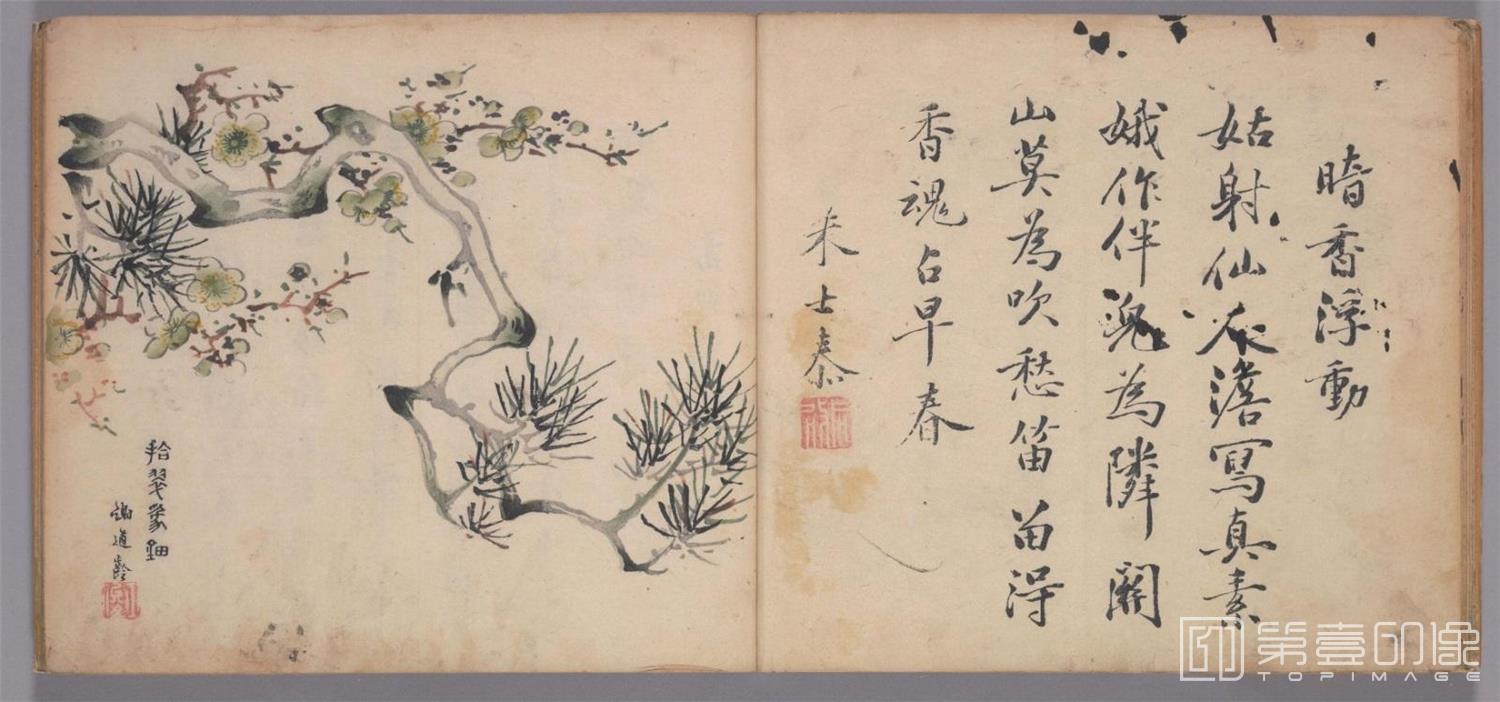 暗香浮動
姑射仙衣澹寫真素
娥作伴兔為隣關
山莫為吹愁笛留得
香魂占早春
士泰
拾翠鈿
道齡
第壹印像
TOPIMAGE